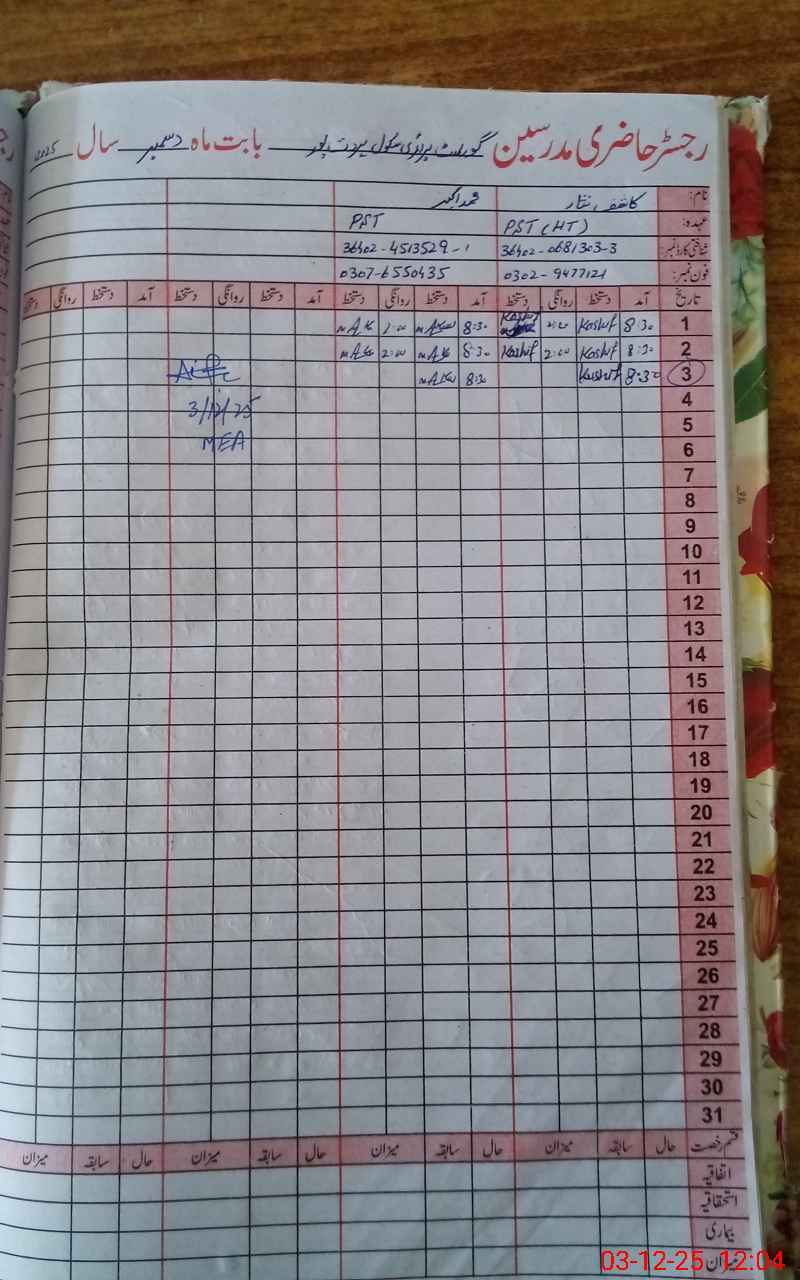 رجسٹر حاضری مدرسین گورنمنٹ پرائمری سکول بابت ماہ دسمبر سال 2025
نام: کاشف نثار محمد اکبر
عہدہ: PST (HT) PST
شناختی کارڈ نمبر: 36402-0681303-3 36402-4513529-1
فون نمبر: 0302-9477121 0307-6550435
تاریخ آمد دستخط روانگی دستخط آمد دستخط روانگی دستخط آمد دستخط روانگی دستخط آمد دستخط روانگی دستخط
1 8:30 Kashif 2:00 Kashif 8:30
2 8:30 Kashif 2:00 Kashif 8:30 2:00
3 8:30 Kashif 8:30
4 3/12/25
5
6 MEA
7
8
9
10
11
12
13
14
15
16
17
18
19
20
21
22
23
24
25
26
27
28
29
30
31
قسم رخصت حال سابقہ میزان حال سابقہ میزان حال سابقہ میزان حال سابقہ میزان
اتفاقیہ
استحقاقیہ
بیماری
میزان
03-12-25 12:04